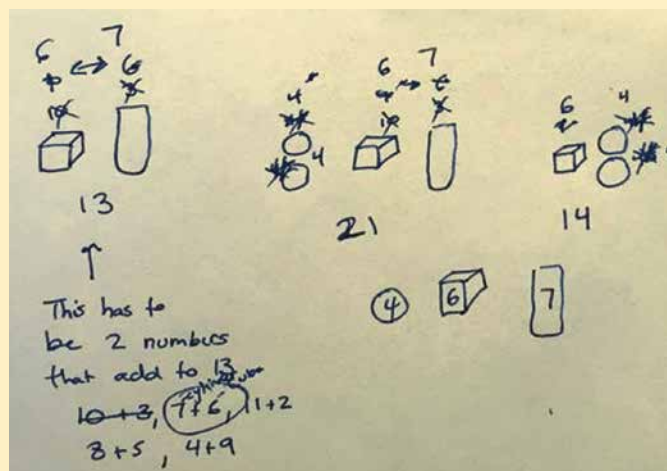 6 7
6 7
4
6 4
4
13
21
14
4 6 7
This has to
be 2 numbers
that add to 13
10+3, 7+6, 11+2
8+5, 4+9